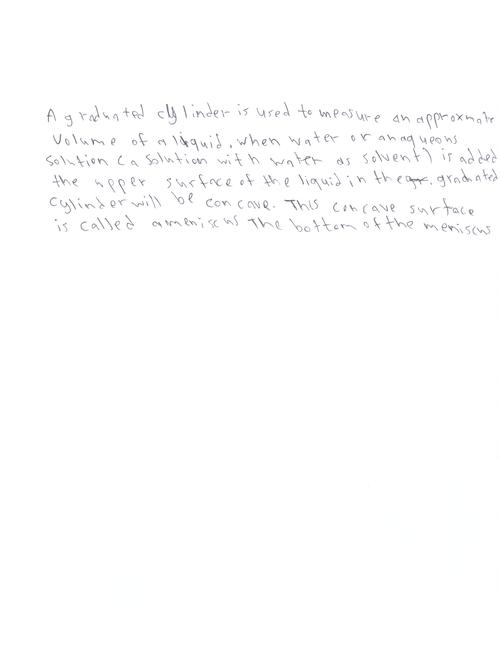 A graduated cylinder is used to measure an approxmate
Volume of a liquid, when water or anaqueons
Solution (a Solution with water as solvent) is added
the upper surface of the liquid in the graduated
Cylinder will be concave. This concave surface
is called a meniscus The bottom of the meniscus